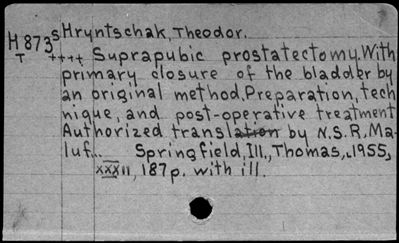 Hryntschak, Theodor.
H873s
T ++++ Suprapubic prostatectomy. With
primary closure of the bladder by
an original method. Preparation, tech
nique, and post-operative treatment
Authorized translation by N.S.R. Ma-
luf... Springfield, Ill., Thomas, 1955,
xxxii, 187p. with ill.